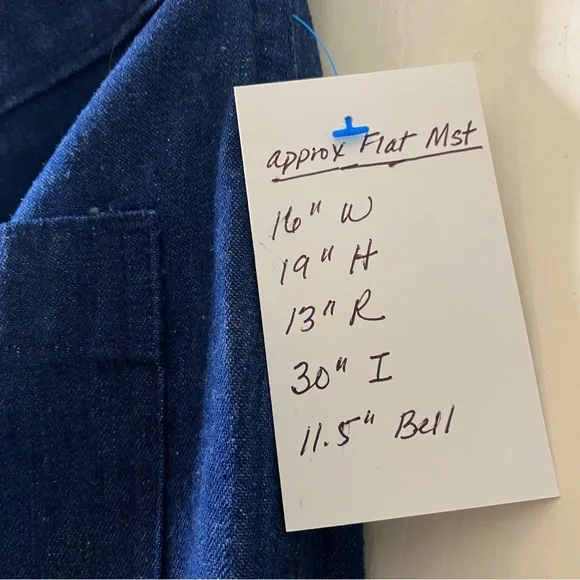 approx Flat Mst
16" W
19" H
13" R
30" I
11.5" Bell